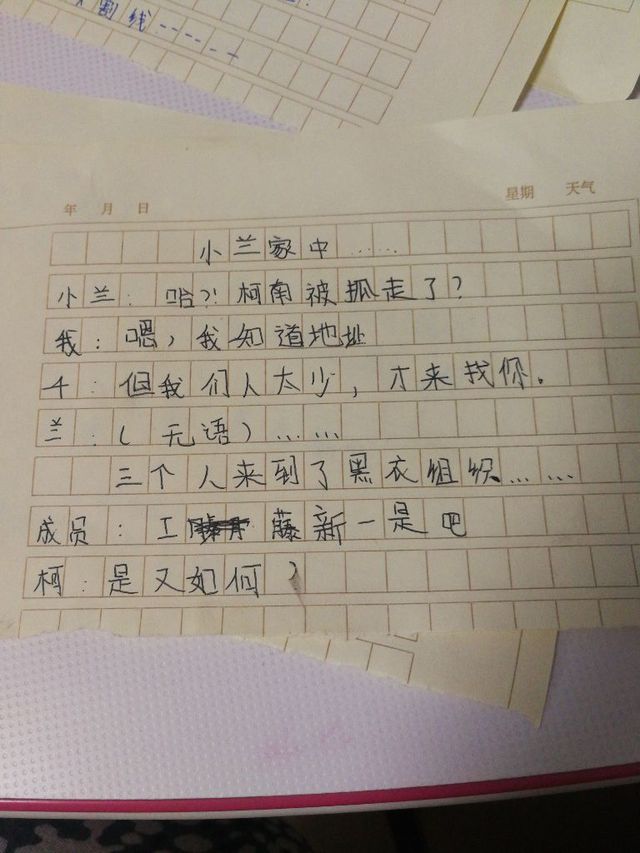 割线------
年 月 日 星期 天气
小兰家中……
小兰：哈?!柯南被抓走了?
我：嗯，我知道地址
千：但我们人太少，才来找你。
兰：(无语)……
三个人来到了黑衣组织……
成员：工藤新一是吧
柯：是又如何?